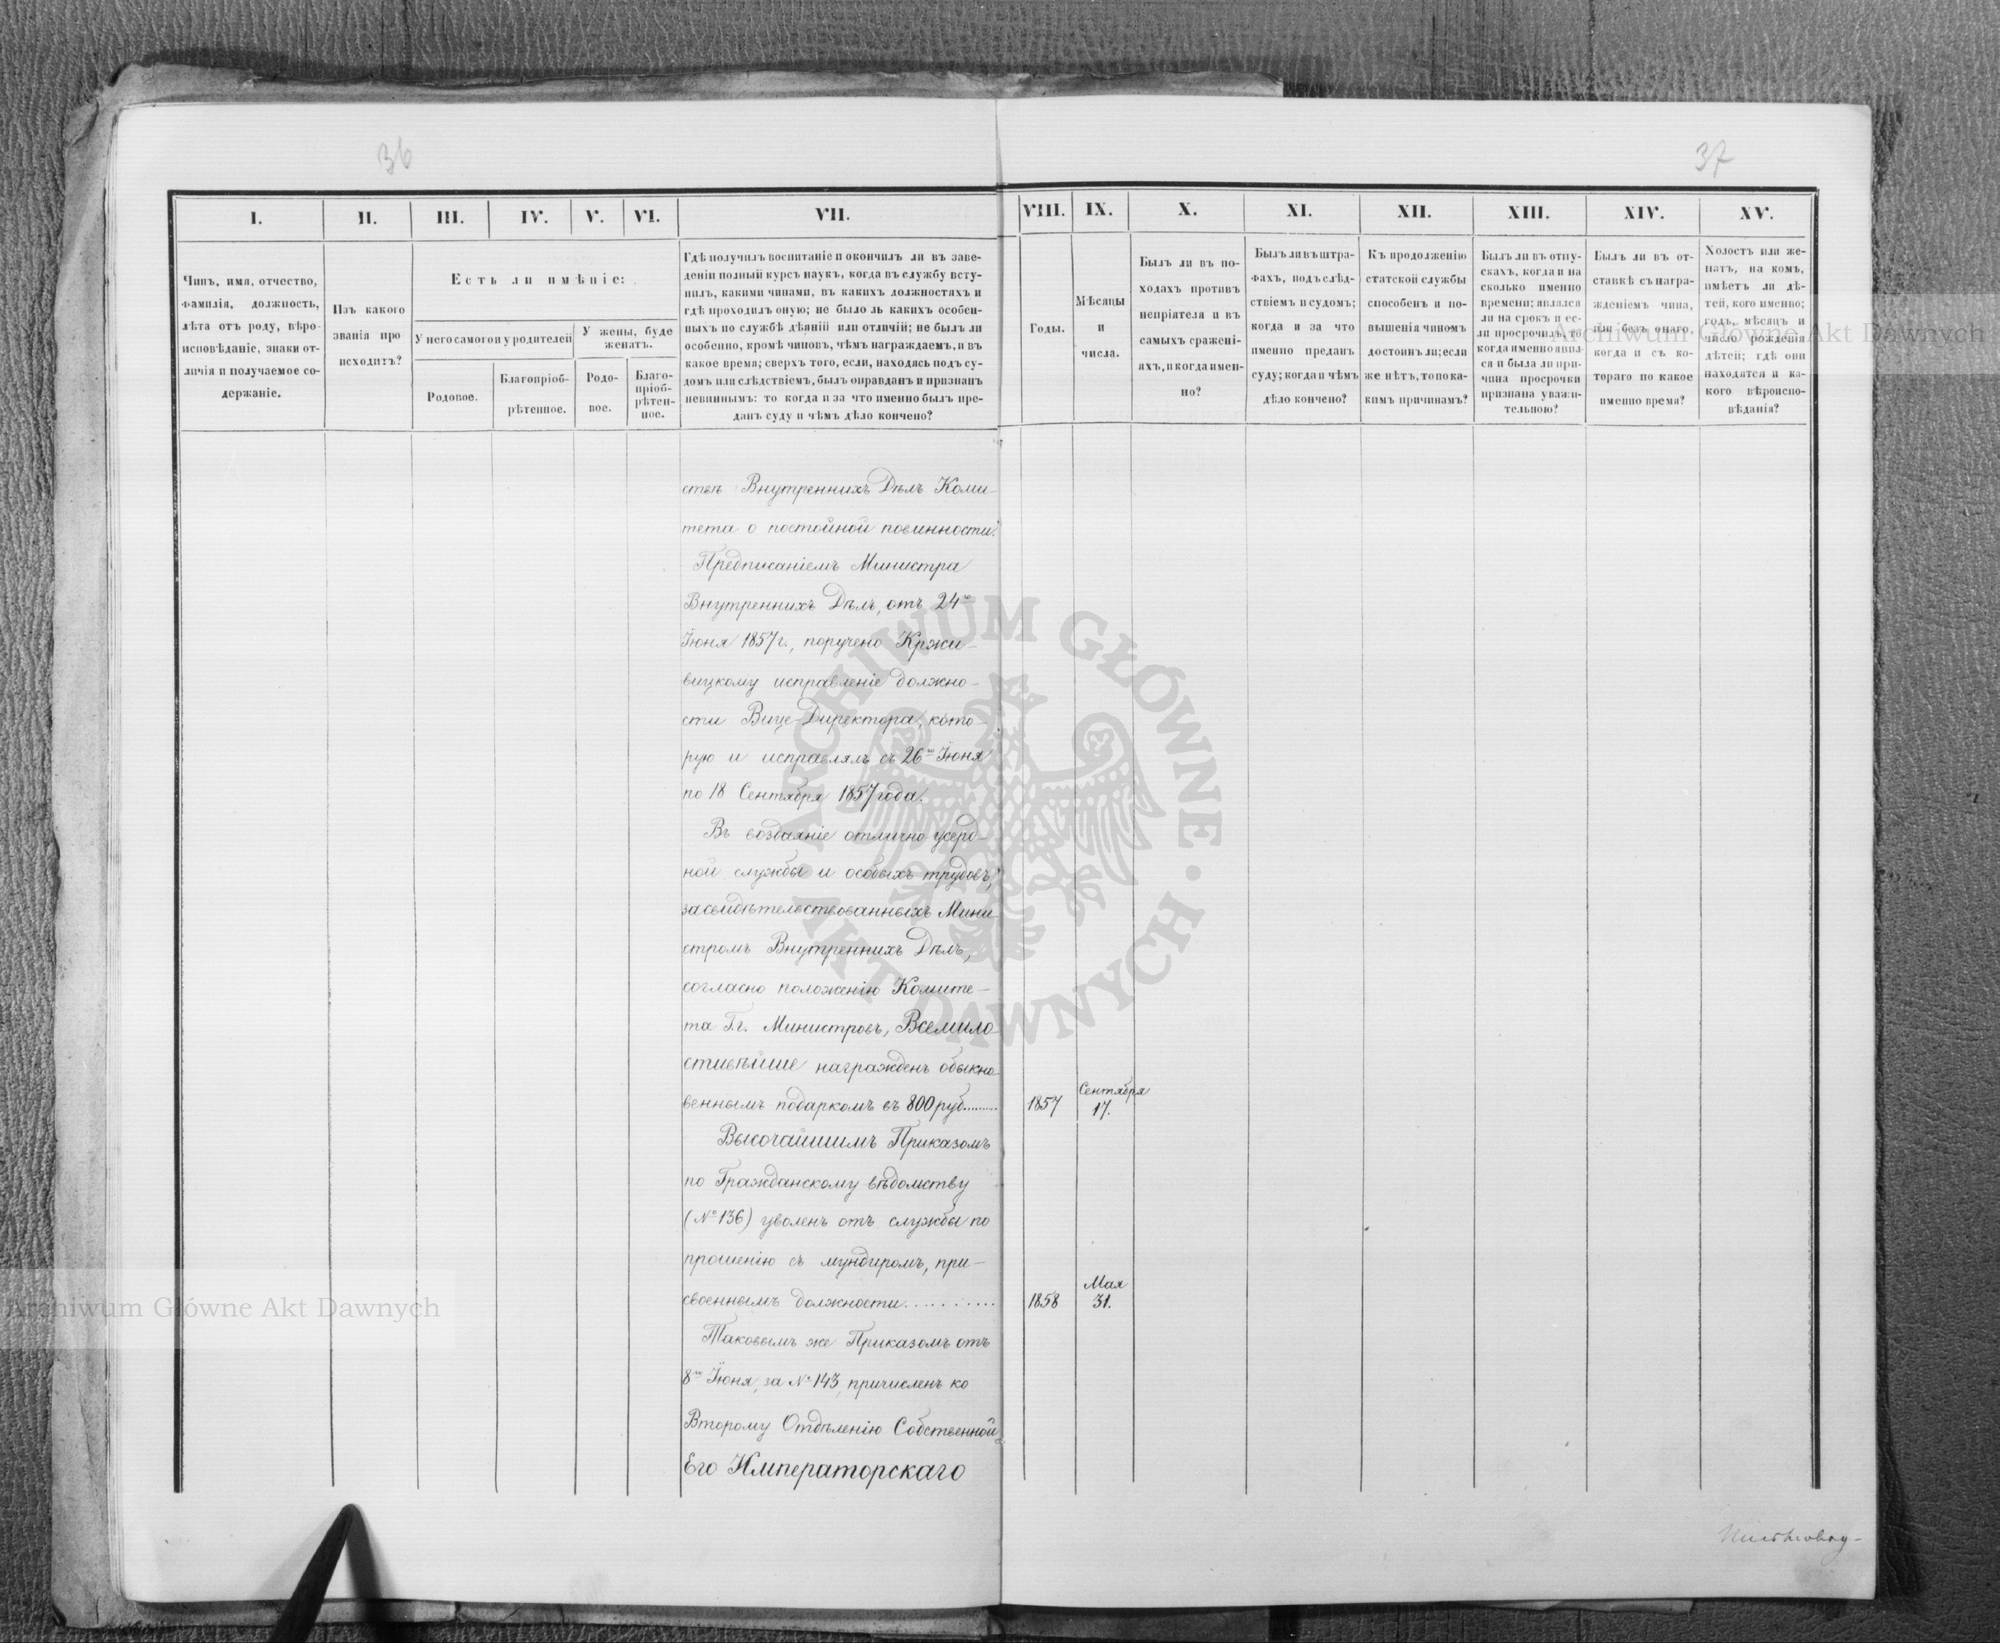 36
37
I.
II.
III.
IV.
V.
VI.
VII.
VIII.
IX.
X.
XI.
XII.
XIII.
XIV.
XV.
Чинъ, имя, отчество,
фамилія, должность,
лѣта отъ роду, вѣро-
исповѣданіе, знаки от-
личія и получаемое со-
держаніе.
Изъ какого
званія про
исходитъ?
Есть ли имѣніе:
У него самого и у родителей
У жены, буде
женатъ.
Родовое.
Благопріоб-
рѣтенное.
Родо-
вое.
Благо-
пріоб-
рѣтен-
ное.
Гдѣ получилъ воспитаніе и окончилъ ли въ заве-
деніи полный курсъ наукъ, когда въ службу всту-
пилъ, какими чинами, въ какихъ должностяхъ и
гдѣ проходилъ оную; не было ль какихъ особен-
ныхъ по службѣ дѣяній или отличій; не былъ ли
особенно, кромѣ чиновъ, чѣмъ награждаемъ, и въ
какое время; сверхъ того, если, находясь подъ су-
домъ или слѣдствіемъ, былъ оправданъ и признанъ
невиннымъ: то когда и за что именно былъ пре-
данъ суду и чѣмъ дѣло кончено?
Годы.
Мѣсяцы
и
числа.
Былъ ли въ по-
ходахъ противъ
непріятеля и въ
самыхъ сражені-
яхъ, и когда имен-
но?
Былъ ли въ штра-
фахъ, подъ слѣд-
ствіемъ и судомъ;
когда и за что
именно преданъ
суду; когда и чѣмъ
дѣло кончено?
Къ продолженію
статской службы
способенъ и по-
вышенія чиномъ
достоинъ ли; если
же нѣтъ, то по ка-
кимъ причинамъ?
Былъ ли въ отпу-
скахъ, когда и на
сколько именно
времени; являлся
ли на срокъ и ес-
ли просрочилъ, то
когда именно явил-
ся и была ли при-
чина просрочки
признана уважи-
тельною?
Былъ ли въ от-
ставкѣ съ награ-
жденіемъ чина,
или безъ онаго,
когда и съ ко-
тораго по какое
именно время?
Холостъ или же-
натъ, на комъ,
имѣетъ ли дѣ-
тей, кого именно;
годъ, мѣсяцъ и
число рожденія
дѣтей; гдѣ они
находятся и ка-
кого вѣроиспо-
вѣданія?
ствѣ Внутреннихъ Дѣлъ Коми-
тета о постойной повинности.
Предписаніемъ Министра
Внутреннихъ Дѣлъ, отъ 24го
Іюня 1857 г., поручено Кржи-
вицкому исправленіе должно-
сти Вице-Директора, кото-
рую и исправлялъ съ 26го Іюня
по 18 Сентября 1857 года.
Въ воздаяніе отлично усерд-
ной службы и особыхъ трудовъ,
засвидѣтельствованныхъ Мини-
стромъ Внутреннихъ Дѣлъ,
согласно положенію Комите-
та Г.г. Министровъ, Всемило-
стивѣйше награжденъ обыкно-
веннымъ подаркомъ въ 800 руб.........
1857
Сентября
17.
Высочайшимъ Приказомъ
по Гражданскому вѣдомству
(№ 136) уволенъ отъ службы по
прошенію съ мундиромъ, при-
своеннымъ должности...........
1858
Мая
31.
Таковымъ же Приказомъ отъ
8го Іюня, за № 143, причисленъ ко
Второму Отдѣленію Собственной
Его Императорскаго
Archiwum Główne Akt Dawnych
Archiwum Główne Akt Dawnych
ARCHIWUM GŁÓWNE · AKT DAWNYCH ·